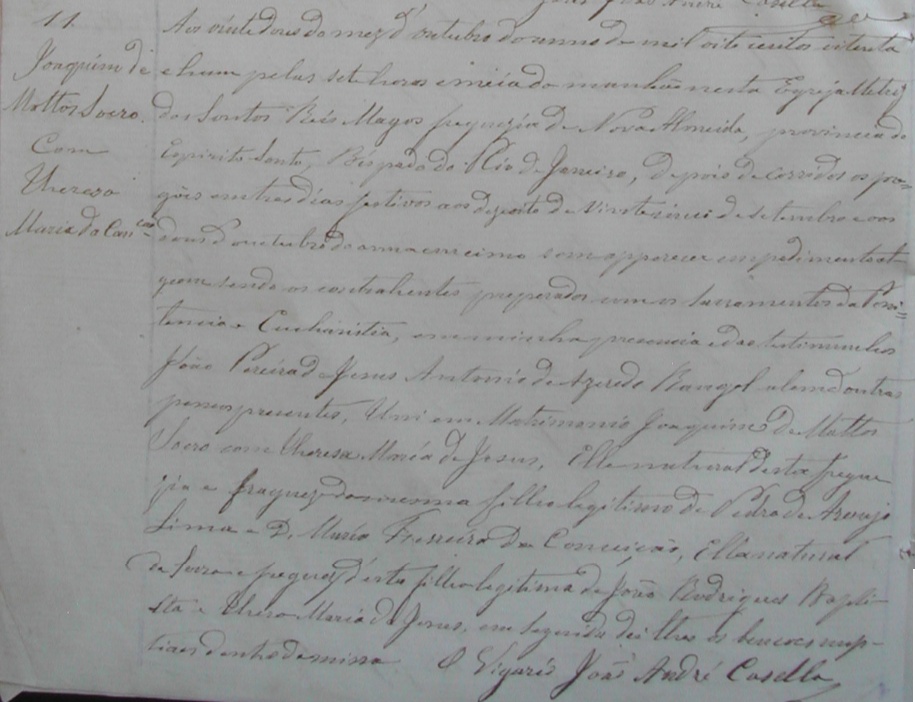 João André Casella
11.
Joaquim de
Mattos Socro.
Com
Thereza
Maria da Con.cao
Aos vinte dous do mez d'outubro do anno de mil oito centos e trinta
e hum pelas sete horas e meia da manhãa nesta Egreja Matriz
dos Santos Reis Magos freguezia de Nova Almeida, provincia do
Espirito Santo, Bispado do Rio de Janeiro, depois de corridos os pro=
gôes em tres dias festivos aos dezoito de Vinte sinci de setembro e aos
dous d'outubro do anno sem apparecer impedimento al-
gum sendo os contrahentes preparados com os sacramentos da Peni=
tencia e Eucharistia, em minha presencia e das testimunhas
João Pereira de Jesus Antonio de Azeredo Rangel alem d'outras
pessoas presentes, Uni em Matrimonio Joaquim de Mattos
Socro com Theresa Maria de Jesus, Elle natural desta fregue
zia e freguez da mesma filho legitimo de Pedro de Araujo
Lima e D. Maria Ferreira da Conceição, Ella natural
da Serra e freguez d'esta filha legitima de João Rodrigues Bapti-
sta e Maria de Jesus, em seguida dei lhes as bencoes nup-
ciaes dentro da missa O Vigario João André Casella